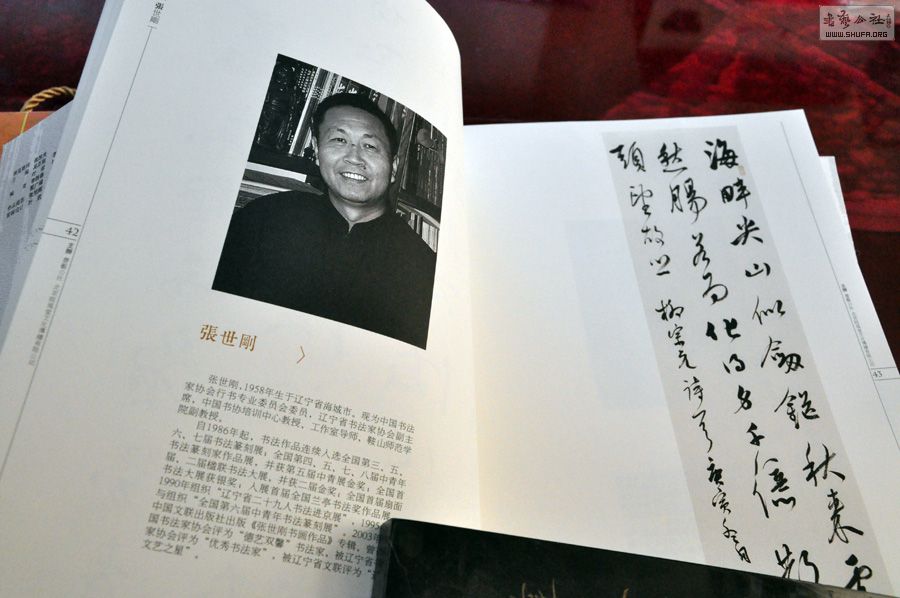 書藝公社
WWW.SHUFA.ORG
張世剛
42
張世剛
张世刚，1958年生于辽宁省海城市。现为中国书法
家协会行书专业委员会委员，辽宁省书法家协会副主
席，中国书协培训中心教授、工作室导师，鞍山师范学
院副教授。
自1986年起，书法作品连续入选全国第三、五、
六、七届书法篆刻展；全国第四、五、七、八届中青年
书法篆刻家作品展，并获第五届中青展金奖；全国首
届、二届楹联书法大展，并获二届金奖；全国首届扇面
书法大展获银奖；入展首届全国兰亭书法奖作品展。
1990年组织“辽宁省二十九人书法进京展”，1995
与组织“全国第六届中青年书法篆刻展”，2003年
中国文联出版社出版《张世刚书画作品》专辑，曾
国书法家协会评为“德艺双馨”书法家，被辽宁省
家协会评为“优秀书法家”，被辽宁省文联评为
文艺之星”。
海畔尖山似劍鋩秋來
愁腸若为化得身千億
頭望故 柳宗元詩 庚寅
43